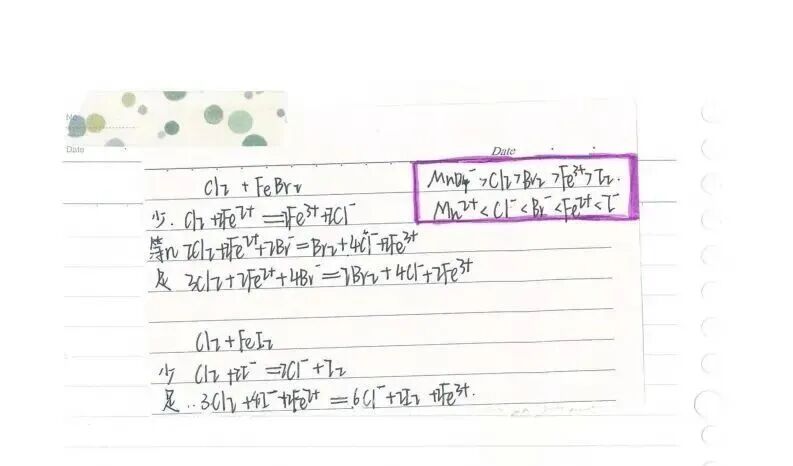 No.
Date
Date
MnO₄⁻ > Cl₂ > Br₂ > Fe³⁺ > I₂.
Mn²⁺ < Cl⁻ < Br⁻ < Fe²⁺ < I⁻
Cl₂ + FeBr₂
少. Cl₂ + 2Fe²⁺ = 2Fe³⁺ + 2Cl⁻
等n 2Cl₂ + 2Fe²⁺ + 2Br⁻ = Br₂ + 4Cl⁻ + 2Fe³⁺
足 3Cl₂ + 2Fe²⁺ + 4Br⁻ = 2Br₂ + 4Cl⁻ + 2Fe³⁺
Cl₂ + FeI₂
少 Cl₂ + 2I⁻ = 2Cl⁻ + I₂
足.. 3Cl₂ + 4I⁻ + 2Fe²⁺ = 6Cl⁻ + 2I₂ + 2Fe³⁺.